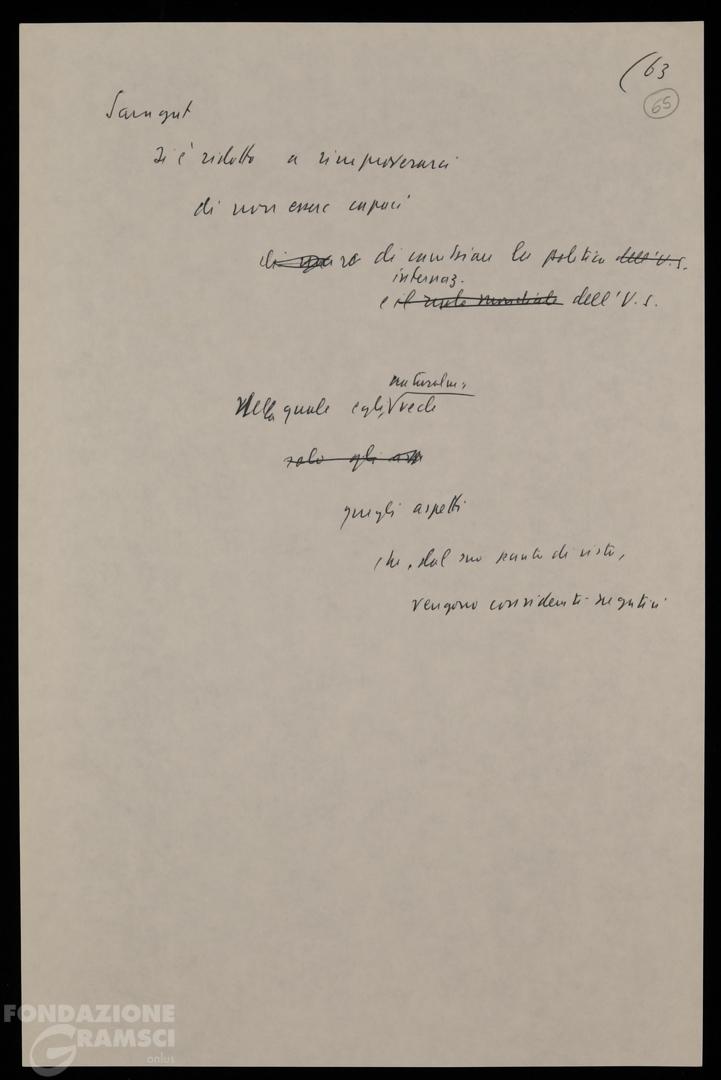 (63
65
Saragat
si è ridotto a rimproverarci
di non essere capaci
di cambiare la politica dell'U.S.
internaz.
e il ruolo mondiale dell'U.S.
naturalm.
Nella quale egli, vede
solo gli
quegli aspetti
che, dal suo punto di vista,
vengono considerati negativi
FONDAZIONE
GRAMSCI
onlus